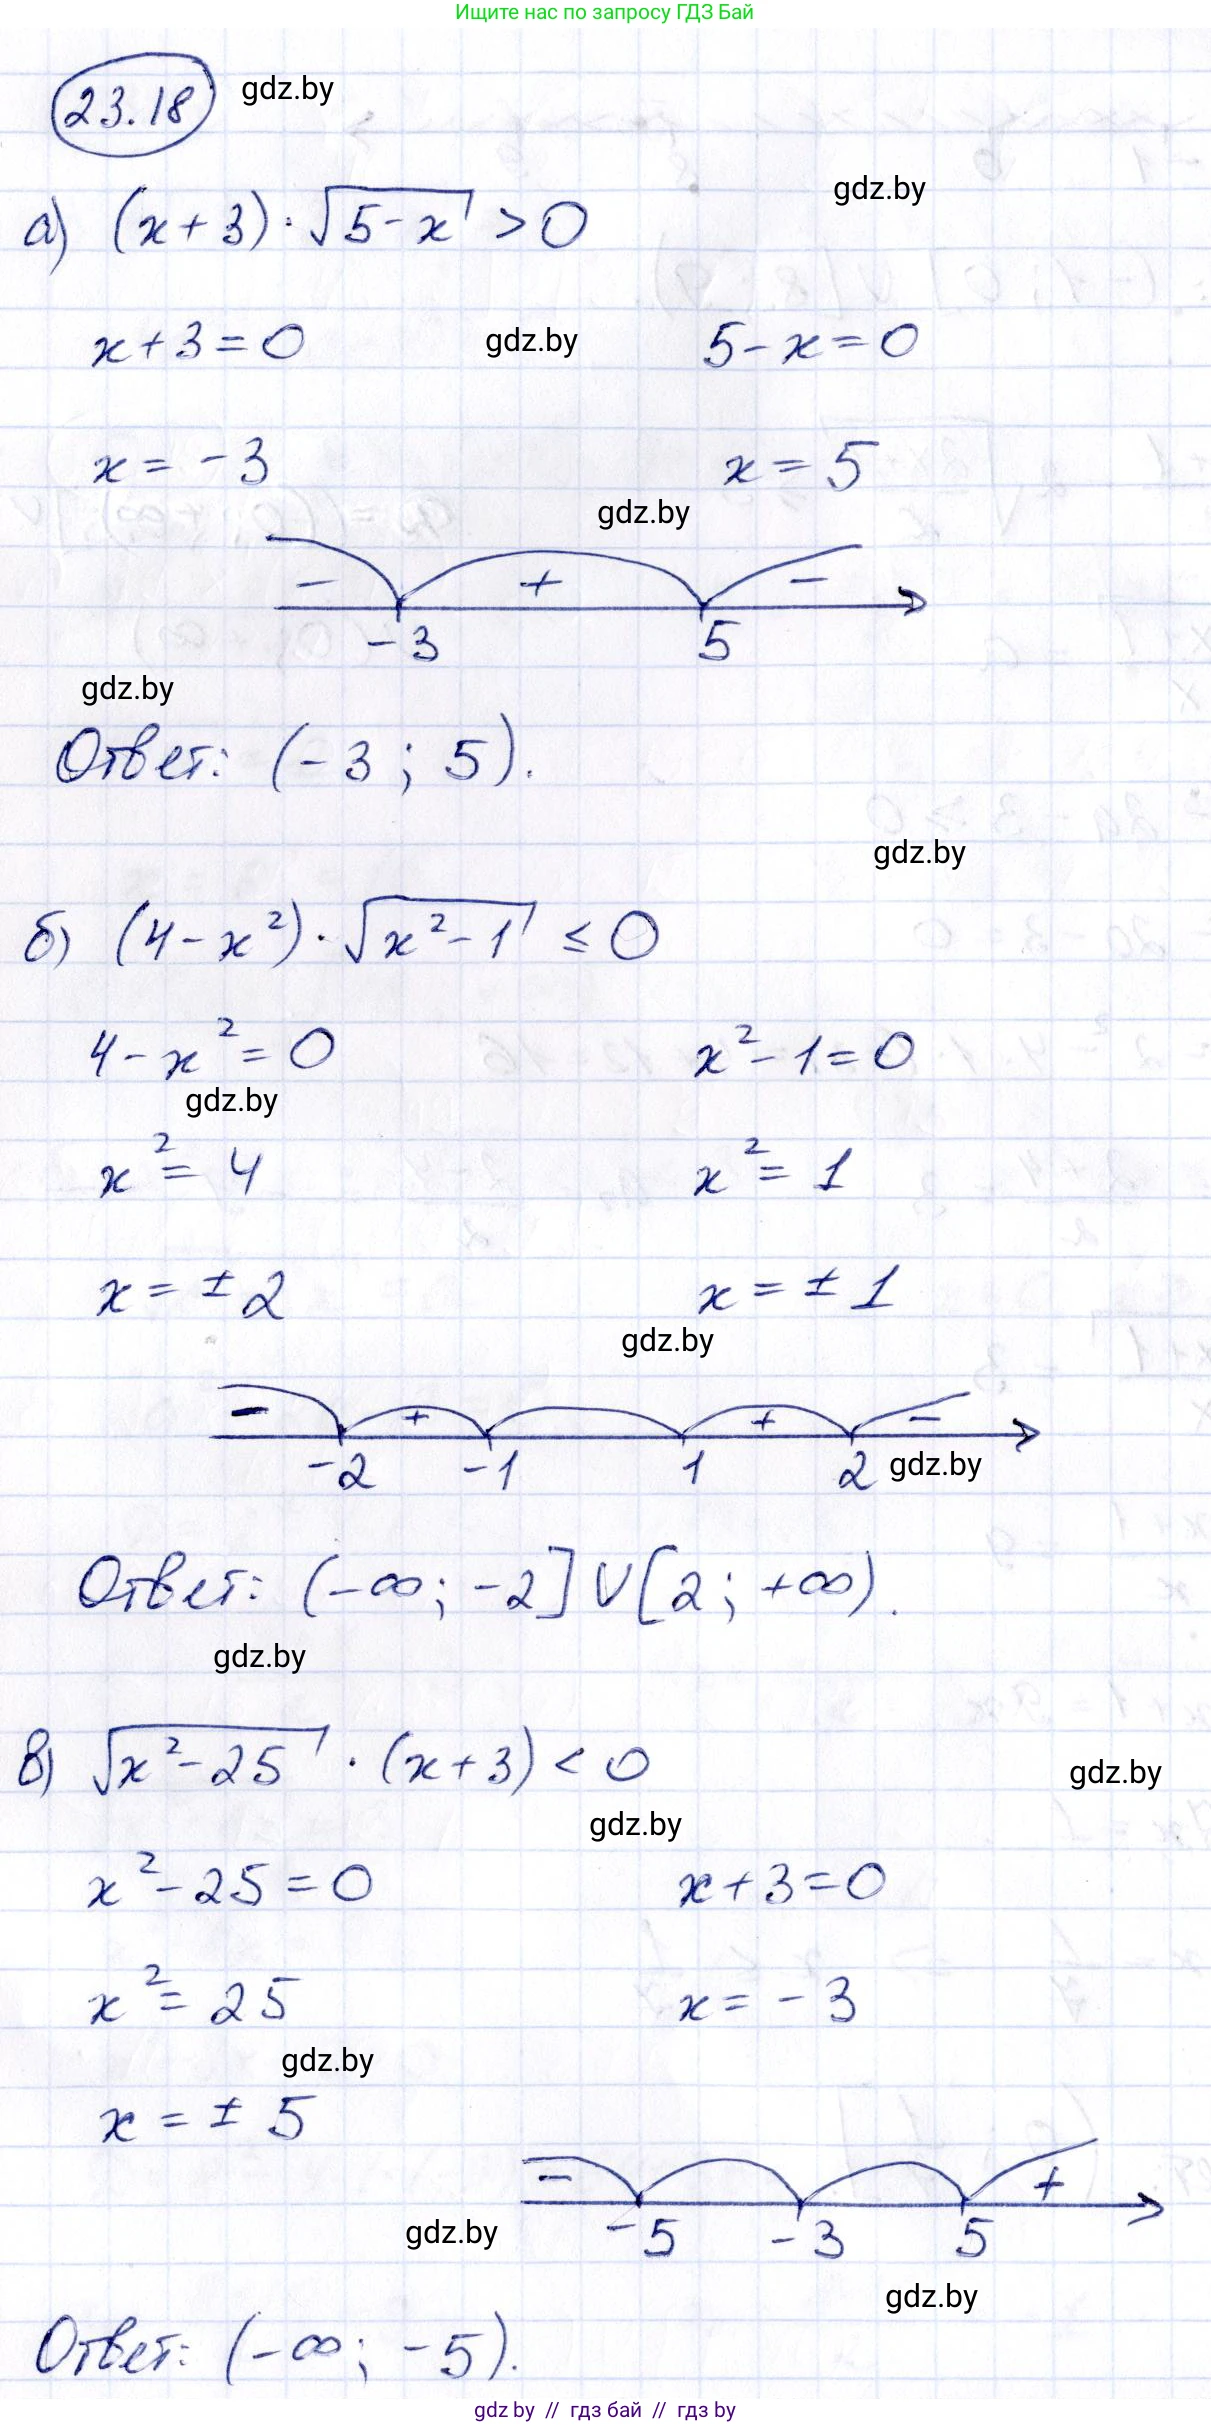 Ищите нас по запросу ГДЗ Бай
23.18 gdz.by
gdz.by
а) (x+3)·√5-x > 0
x+3=0 gdz.by 5-x=0
x = -3 x = 5
gdz.by
- + -
-3 5
gdz.by
Ответ: (-3; 5).
gdz.by
б) (4-x²)·√x²-1 ≤ 0
4-x²=0 x²-1=0
gdz.by
x²= 4 x²= 1
x = ±2 x = ±1
gdz.by
- + + -
-2 -1 1 2 gdz.by
Ответ: (-∞; -2]∪[2; +∞).
gdz.by
в) √x²-25 · (x+3) < 0
gdz.by
gdz.by
x²-25=0 x+3=0
x²= 25 x= -3
gdz.by
x = ± 5
- +
-5 -3 5
gdz.by
gdz.by
Ответ: (-∞; -5).
gdz by // гдз бай // гдз by